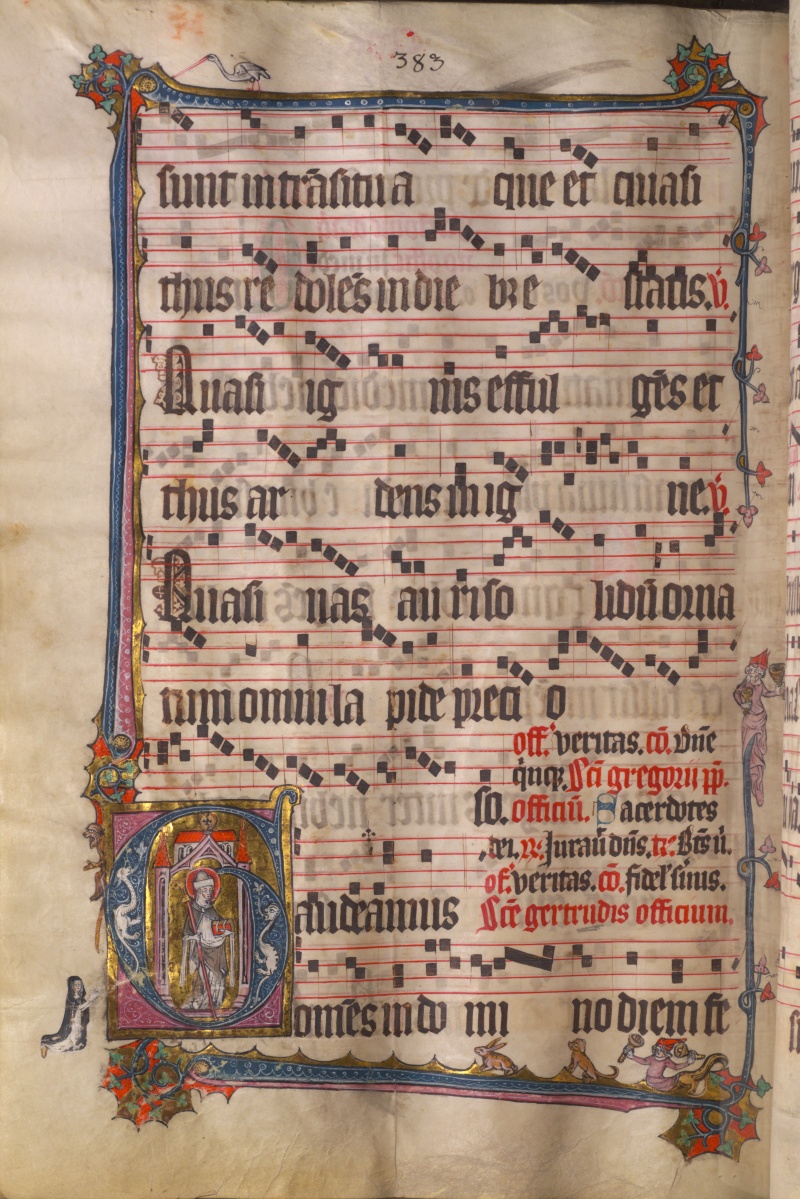 383
sunt in trāsitu a que et quasi
thus re dolēs in die bre statis. v̄.
Quasi ig nis efful gēs et
thus ar dens in ig ne. v̄.
Quasi uas au ri so lidū orna
tum omni la pide preci o
off. veritas. cō. dñe
quiq̄. Sc̄i gregorii pp̄.
so. officiū. Sacerdotes
dei. R. Jurauit dñs. tc̄. Bt̄s ū.
of. veritas. cō. fidel' seruus.
Gaudeamus Sc̄e gertrudis officium.
omēs in do mi no diem fe